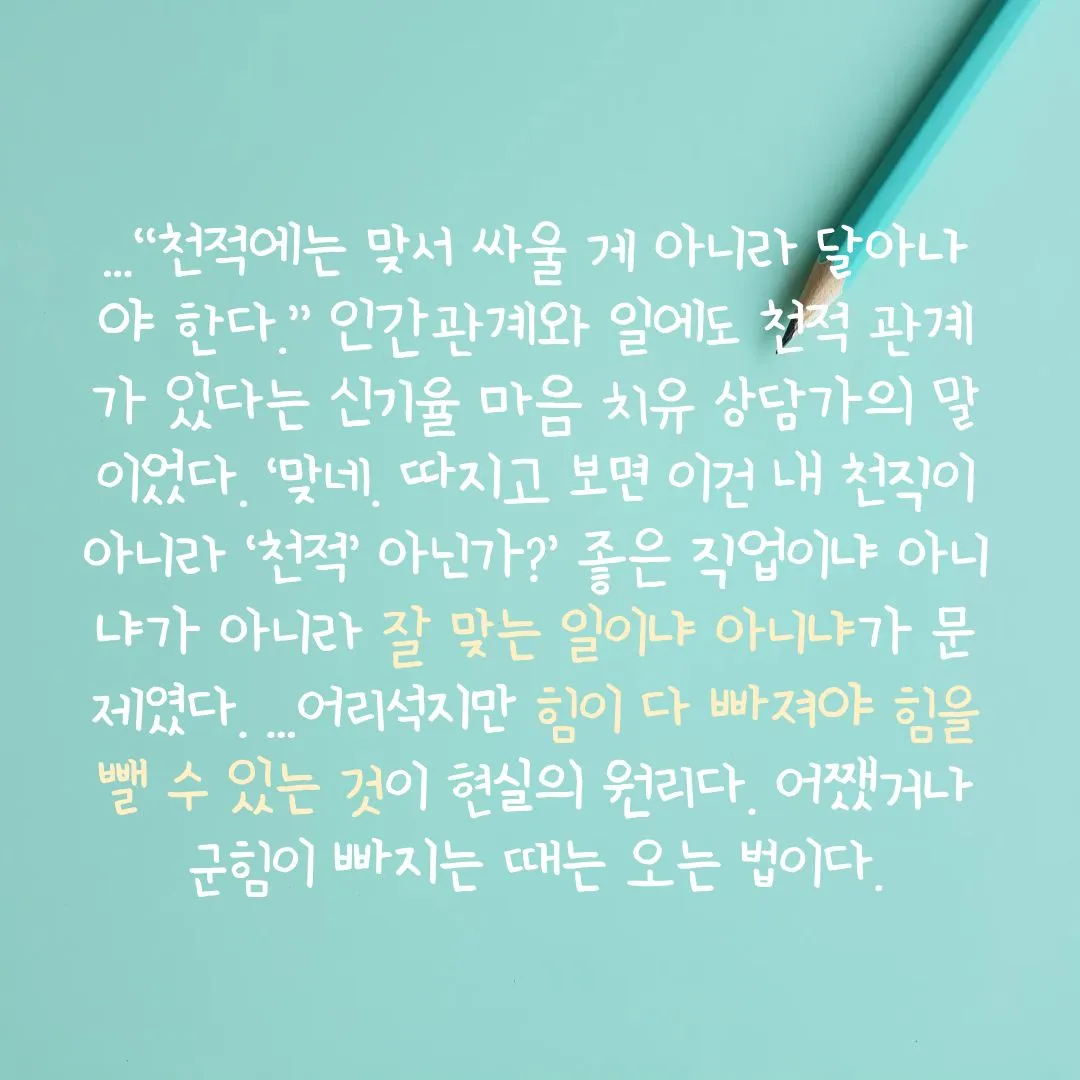 ..."천적에는 맞서 싸울 게 아니라 달아나
야 한다." 인간관계와 일에도 천적 관계
가 있다는 신기율 마음 치유 상담가의 말
이었다. '맞네. 따지고 보면 이건 내 천직이
아니라 '천적' 아닌가?' 좋은 직업이냐 아니
냐가 아니라 잘 맞는 일이냐 아니냐가 문
제였다. ...어리석지만 힘이 다 빠져야 힘을
뺄 수 있는 것이 현실의 원리다. 어쨌거나
군힘이 빠지는 때는 오는 법이다.